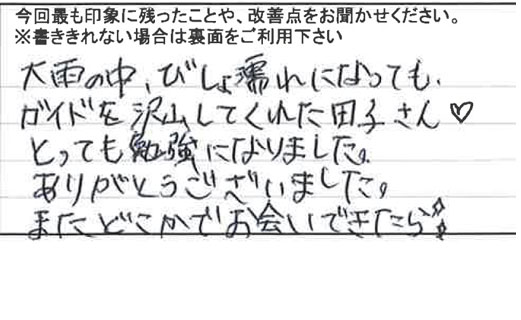 今回最も印象に残ったことや、改善点をお聞かせください。
※書ききれない場合は裏面をご利用下さい
大雨の中、びしょ濡れになっても、
ガイドを沢山してくれた田子さん♡
とっても勉強になりました。
ありがとうございました。
またどこかでお会いできたら